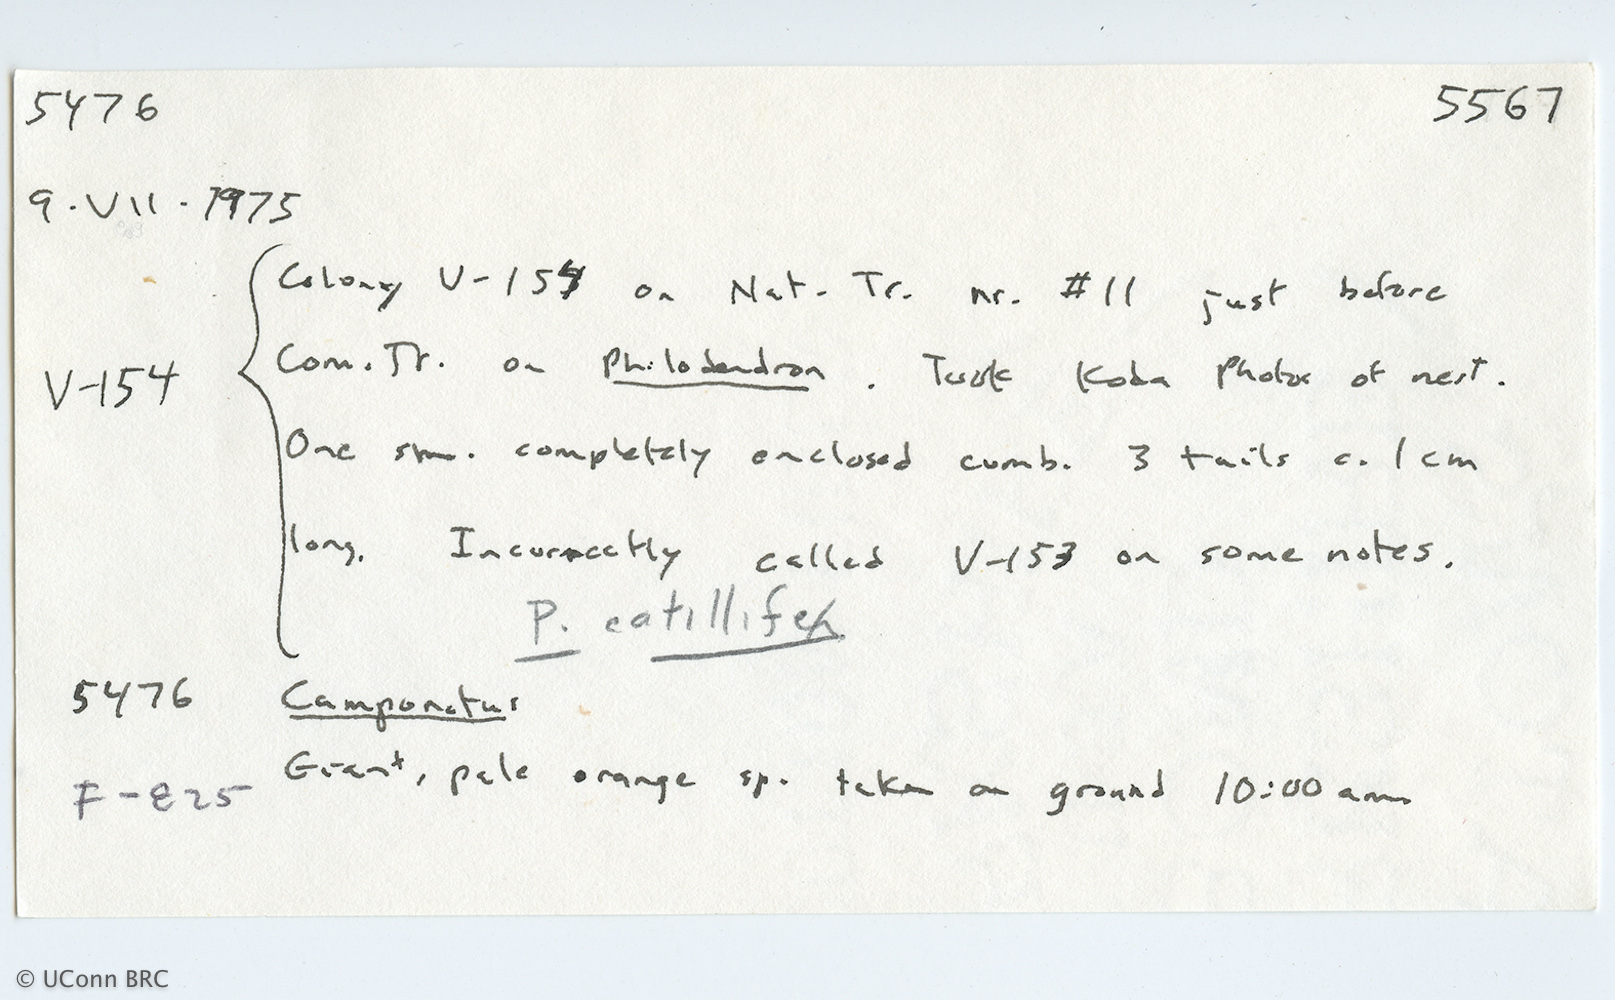 5476 5567
9.VII.1975
Colony V-154 on Nat. Tr. nr. #11 just before
Com. Tr. on Philodendron. Took Koda Photos of nest.
V-154
One sm. completely enclosed comb. 3 tails c. 1 cm
long. Incorrectly called V-153 on some notes.
P. catillifex
5476 Camponotus
Giant, pale orange sp. taken on ground 10:00 am.
F-825
© UConn BRC